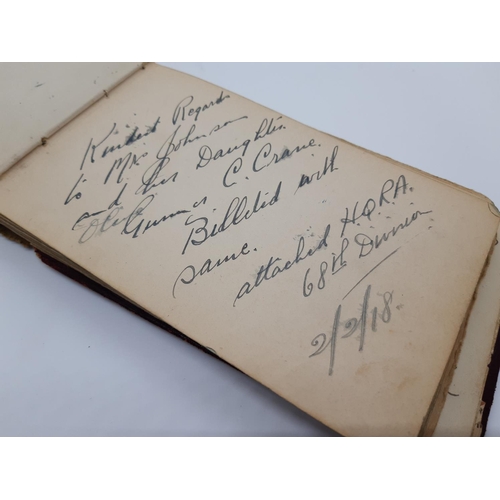 Kindest Regards
to Mrs Johnson
and her Daughter.
Gunner C. Crane.
Billeted with
same.
attached HQRA.
68th Division
2/2/18.